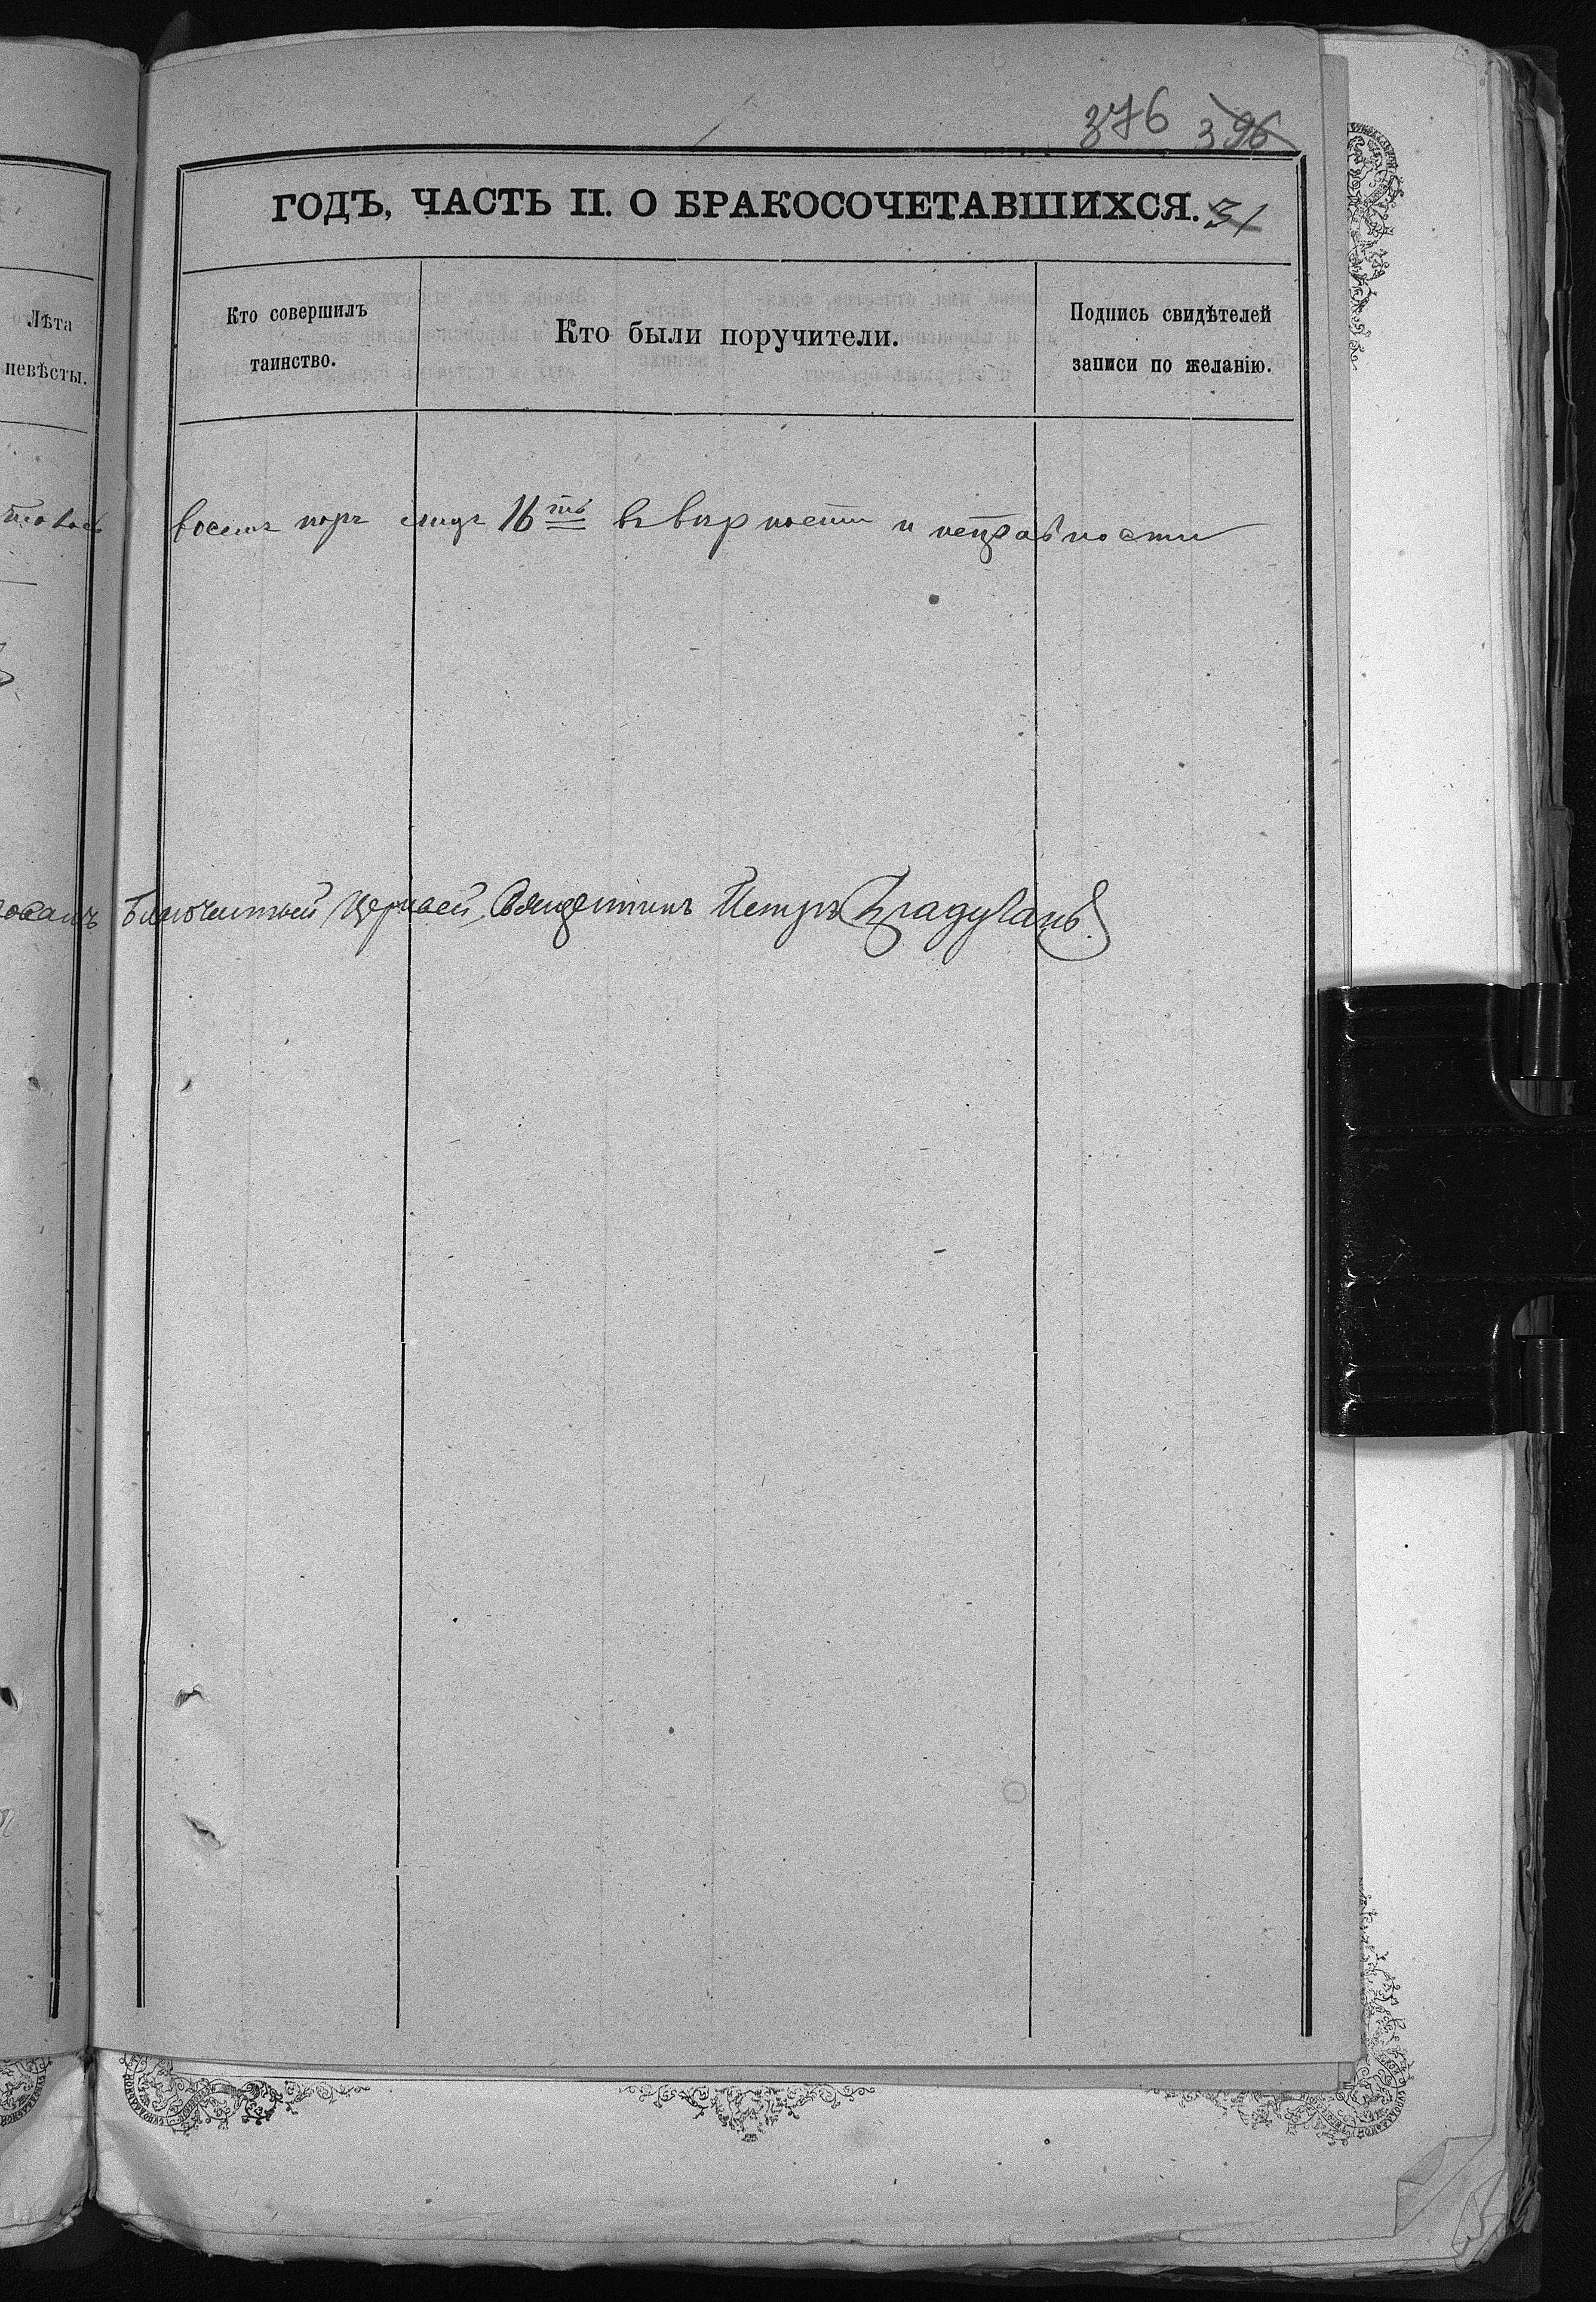 376 396
ГОДЪ, ЧАСТЬ II. О БРАКОСОЧЕТАВШИХСЯ. 31
Лѣта
невѣсты.
Кто совершилъ
таинство.
Кто были поручители.
Подпись свидѣтелей
записи по желанію.
восемъ паръ лицъ 16ть въ вѣрности и исправности
Благочинный Церквей, Священникъ Петръ